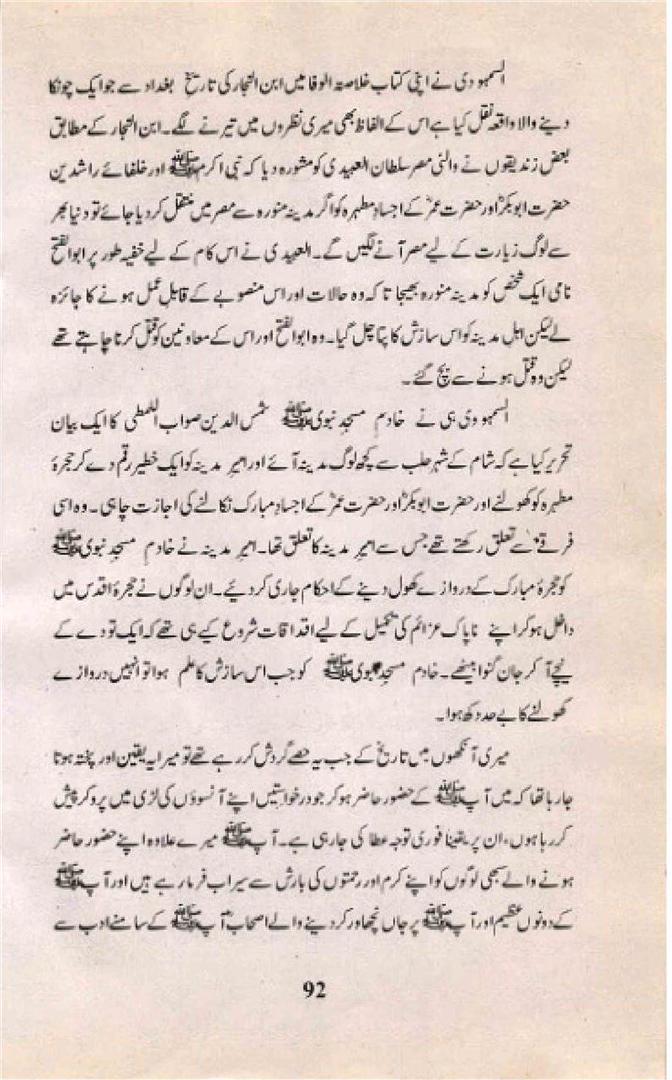 السمہودی نے اپنی کتاب خلاصتہ الوفا میں ابن النجار کی تاریخ بغداد سے جو ایک چونکا
دینے والا واقعہ نقل کیا ہے اس کے الفاظ بھی میری نظروں میں تیرنے لگے۔ ابن النجار کے مطابق
بعض زندیقوں نے والئی مصر سلطان العبیدی کو مشورہ دیا کہ نبی اکرم ﷺ اور خلفائے راشدین
حضرت ابوبکرؓ اور حضرت عمرؓ کے اجسادِ مطہرہ کو اگر مدینہ منورہ سے مصر میں منتقل کر دیا جائے تو دنیا بھر
سے لوگ زیارت کے لیے مصر آنے لگیں گے۔ العبیدی نے اس کام کے لیے خفیہ طور پر ابوالفتح
نامی ایک شخص کو مدینہ منورہ بھیجا تا کہ وہ حالات اور اس منصوبے کے قابلِ عمل ہونے کا جائزہ
لے لیکن اہلِ مدینہ کو اس سازش کا پتا چل گیا۔ وہ ابوالفتح اور اس کے معاونین کو قتل کرنا چاہتے تھے
لیکن وہ قتل ہونے سے بچ گئے۔
السمہودی ہی نے خادمِ مسجدِ نبوی ﷺ شمس الدین صواب اللمطی کا ایک بیان
تحریر کیا ہے کہ شام کے شہر حلب سے کچھ لوگ مدینہ آئے اور امیرِ مدینہ کو ایک خطیر رقم دے کر حجرۂ
مطہرہ کو کھولنے اور حضرت ابوبکرؓ اور حضرت عمرؓ کے اجسادِ مبارک نکالنے کی اجازت چاہی۔ وہ اسی
فرقے سے تعلق رکھتے تھے جس سے امیرِ مدینہ کا تعلق تھا۔ امیرِ مدینہ نے خادمِ مسجدِ نبوی ﷺ
کو حجرۂ مبارک کے دروازے کھول دینے کے احکام جاری کر دیئے۔ ان لوگوں نے حجرۂ اقدس میں
داخل ہو کر اپنے ناپاک عزائم کی تکمیل کے لیے اقدامات شروع کیے ہی تھے کہ ایک تودے کے
نیچے آ کر جان گنوا بیٹھے۔ خادمِ مسجدِ نبوی ﷺ کو جب اس سازش کا علم ہوا تو انہیں دروازے
کھولنے کا بے حد دکھ ہوا۔
میری آنکھوں میں تاریخ کے جب یہ حصے گردش کر رہے تھے تو میرا یہ یقین اور پختہ ہوتا
جا رہا تھا کہ میں آپ ﷺ کے حضور حاضر ہو کر جو درخواستیں اپنے آنسوؤں کی لڑی میں پرو کر پیش
کر رہا ہوں، ان پر یقیناً فوری توجہ عطا کی جا رہی ہے۔ آپ ﷺ میرے علاوہ اپنے حضور حاضر
ہونے والے سبھی لوگوں کو اپنے کرم اور رحمتوں کی بارش سے سیراب فرما رہے ہیں اور آپ ﷺ
کے دونوں عظیم اور آپ ﷺ پر جاں نچھاور کر دینے والے اصحابؓ آپ ﷺ کے سامنے ادب سے
92